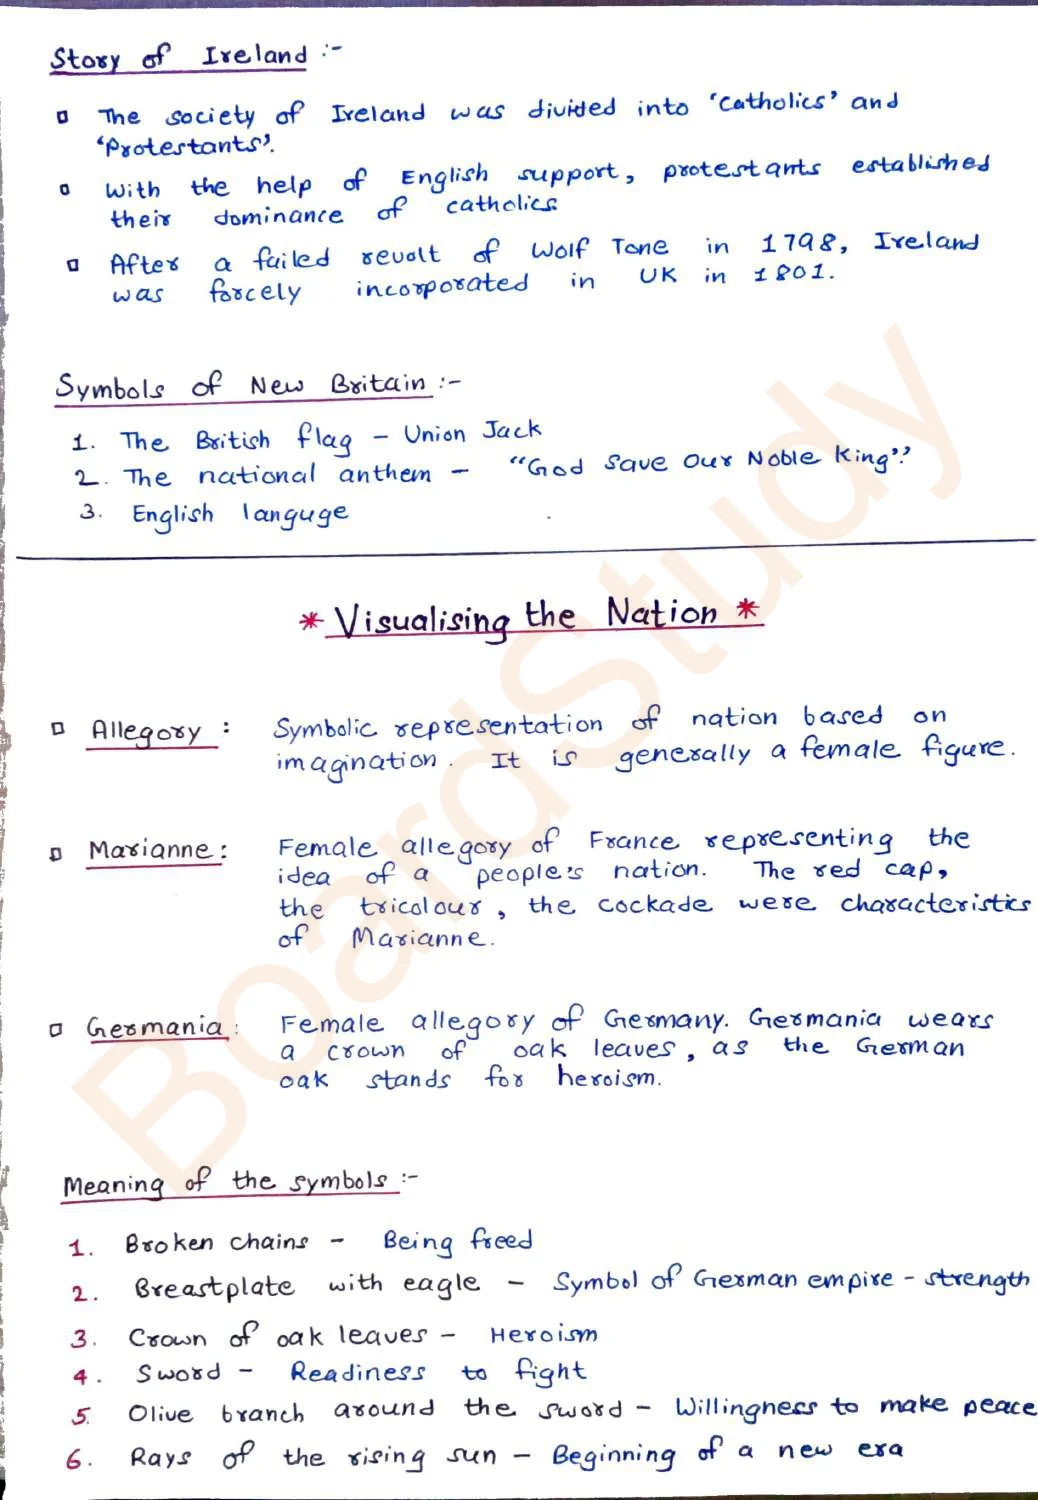 Story of Ireland :-
The society of Ireland was divided into 'Catholics' and
'Protestants'.
With the help of English support, protestants established
their dominance of catholics
After a failed revolt of Wolf Tone in 1798, Ireland
was forcely incorporated in UK in 1801.
Symbols of New Britain :-
1. The British flag - Union Jack
2. The national anthem - "God Save Our Noble King".
3. English languge
* Visualising the Nation *
Allegory : Symbolic representation of nation based on
imagination. It is generally a female figure.
Marianne : Female allegory of France representing the
idea of a people's nation. The red cap,
the tricolour, the cockade were characteristics
of Marianne.
Germania : Female allegory of Germany. Germania wears
a crown of oak leaves, as the German
oak stands for heroism.
Meaning of the symbols :-
1. Broken chains - Being freed
2. Breastplate with eagle - Symbol of German empire - strength
3. Crown of oak leaves - Heroism
4. Sword - Readiness to fight
5. Olive branch around the sword - Willingness to make peace
6. Rays of the rising sun - Beginning of a new era
BoardStudy